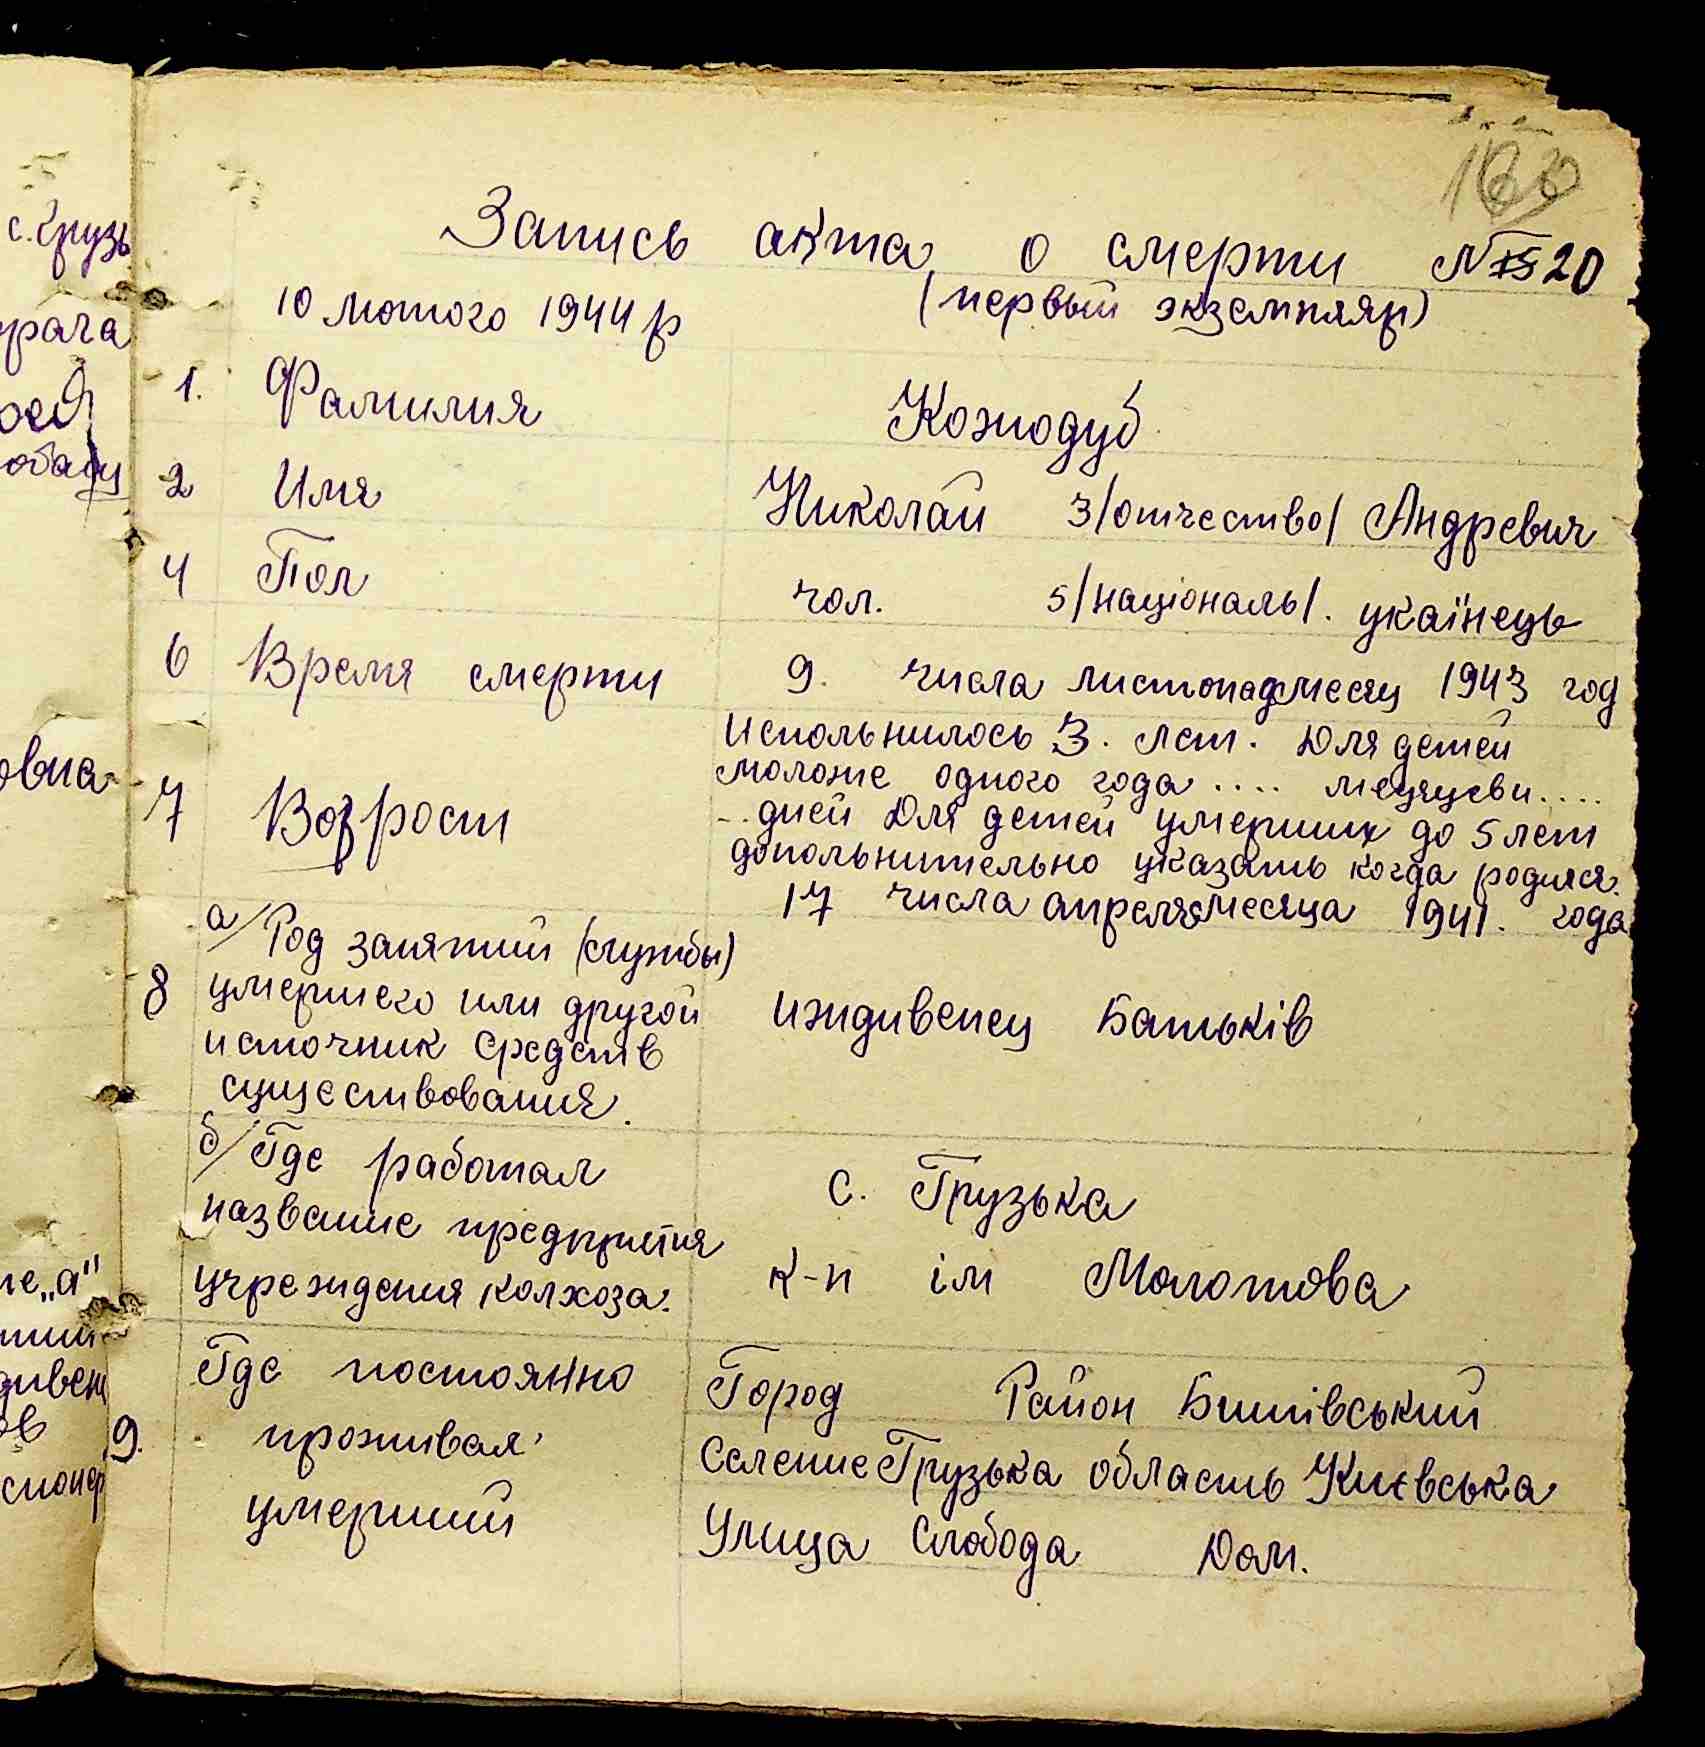 Запись акта о смерти № 20
10 лютого 1944 р (первый экземпляр)
1. Фамилия Кожодуб
2 Имя Николай 3/отчество/ Андревич
4 Пол чол. 5/національ/. укаїнець
6 Время смерти 9. числа листопад месяц 1943 год
7 Возрост
испольнилось 3. лет. Для детей
моложе одного года .... месяцеви....
.. дней Для детей умерших до 5 лет
допольнительно указать когда родился.
17 числа апреля месяца 1941. года
8
а/ Род занятий (службы)
умершего или другой
источник средств
существования.
иждивенец батьків
б/ Где работал
название предприятия
учреждения колхоза.
с. Грузька
к-п ім Молотова
9.
Где постоянно
проживал
умерший
Город Район Бишівський
Селение Грузька область Київська
Улица Слобода Дом.
с. Грузь
врача
овна
ие „а"